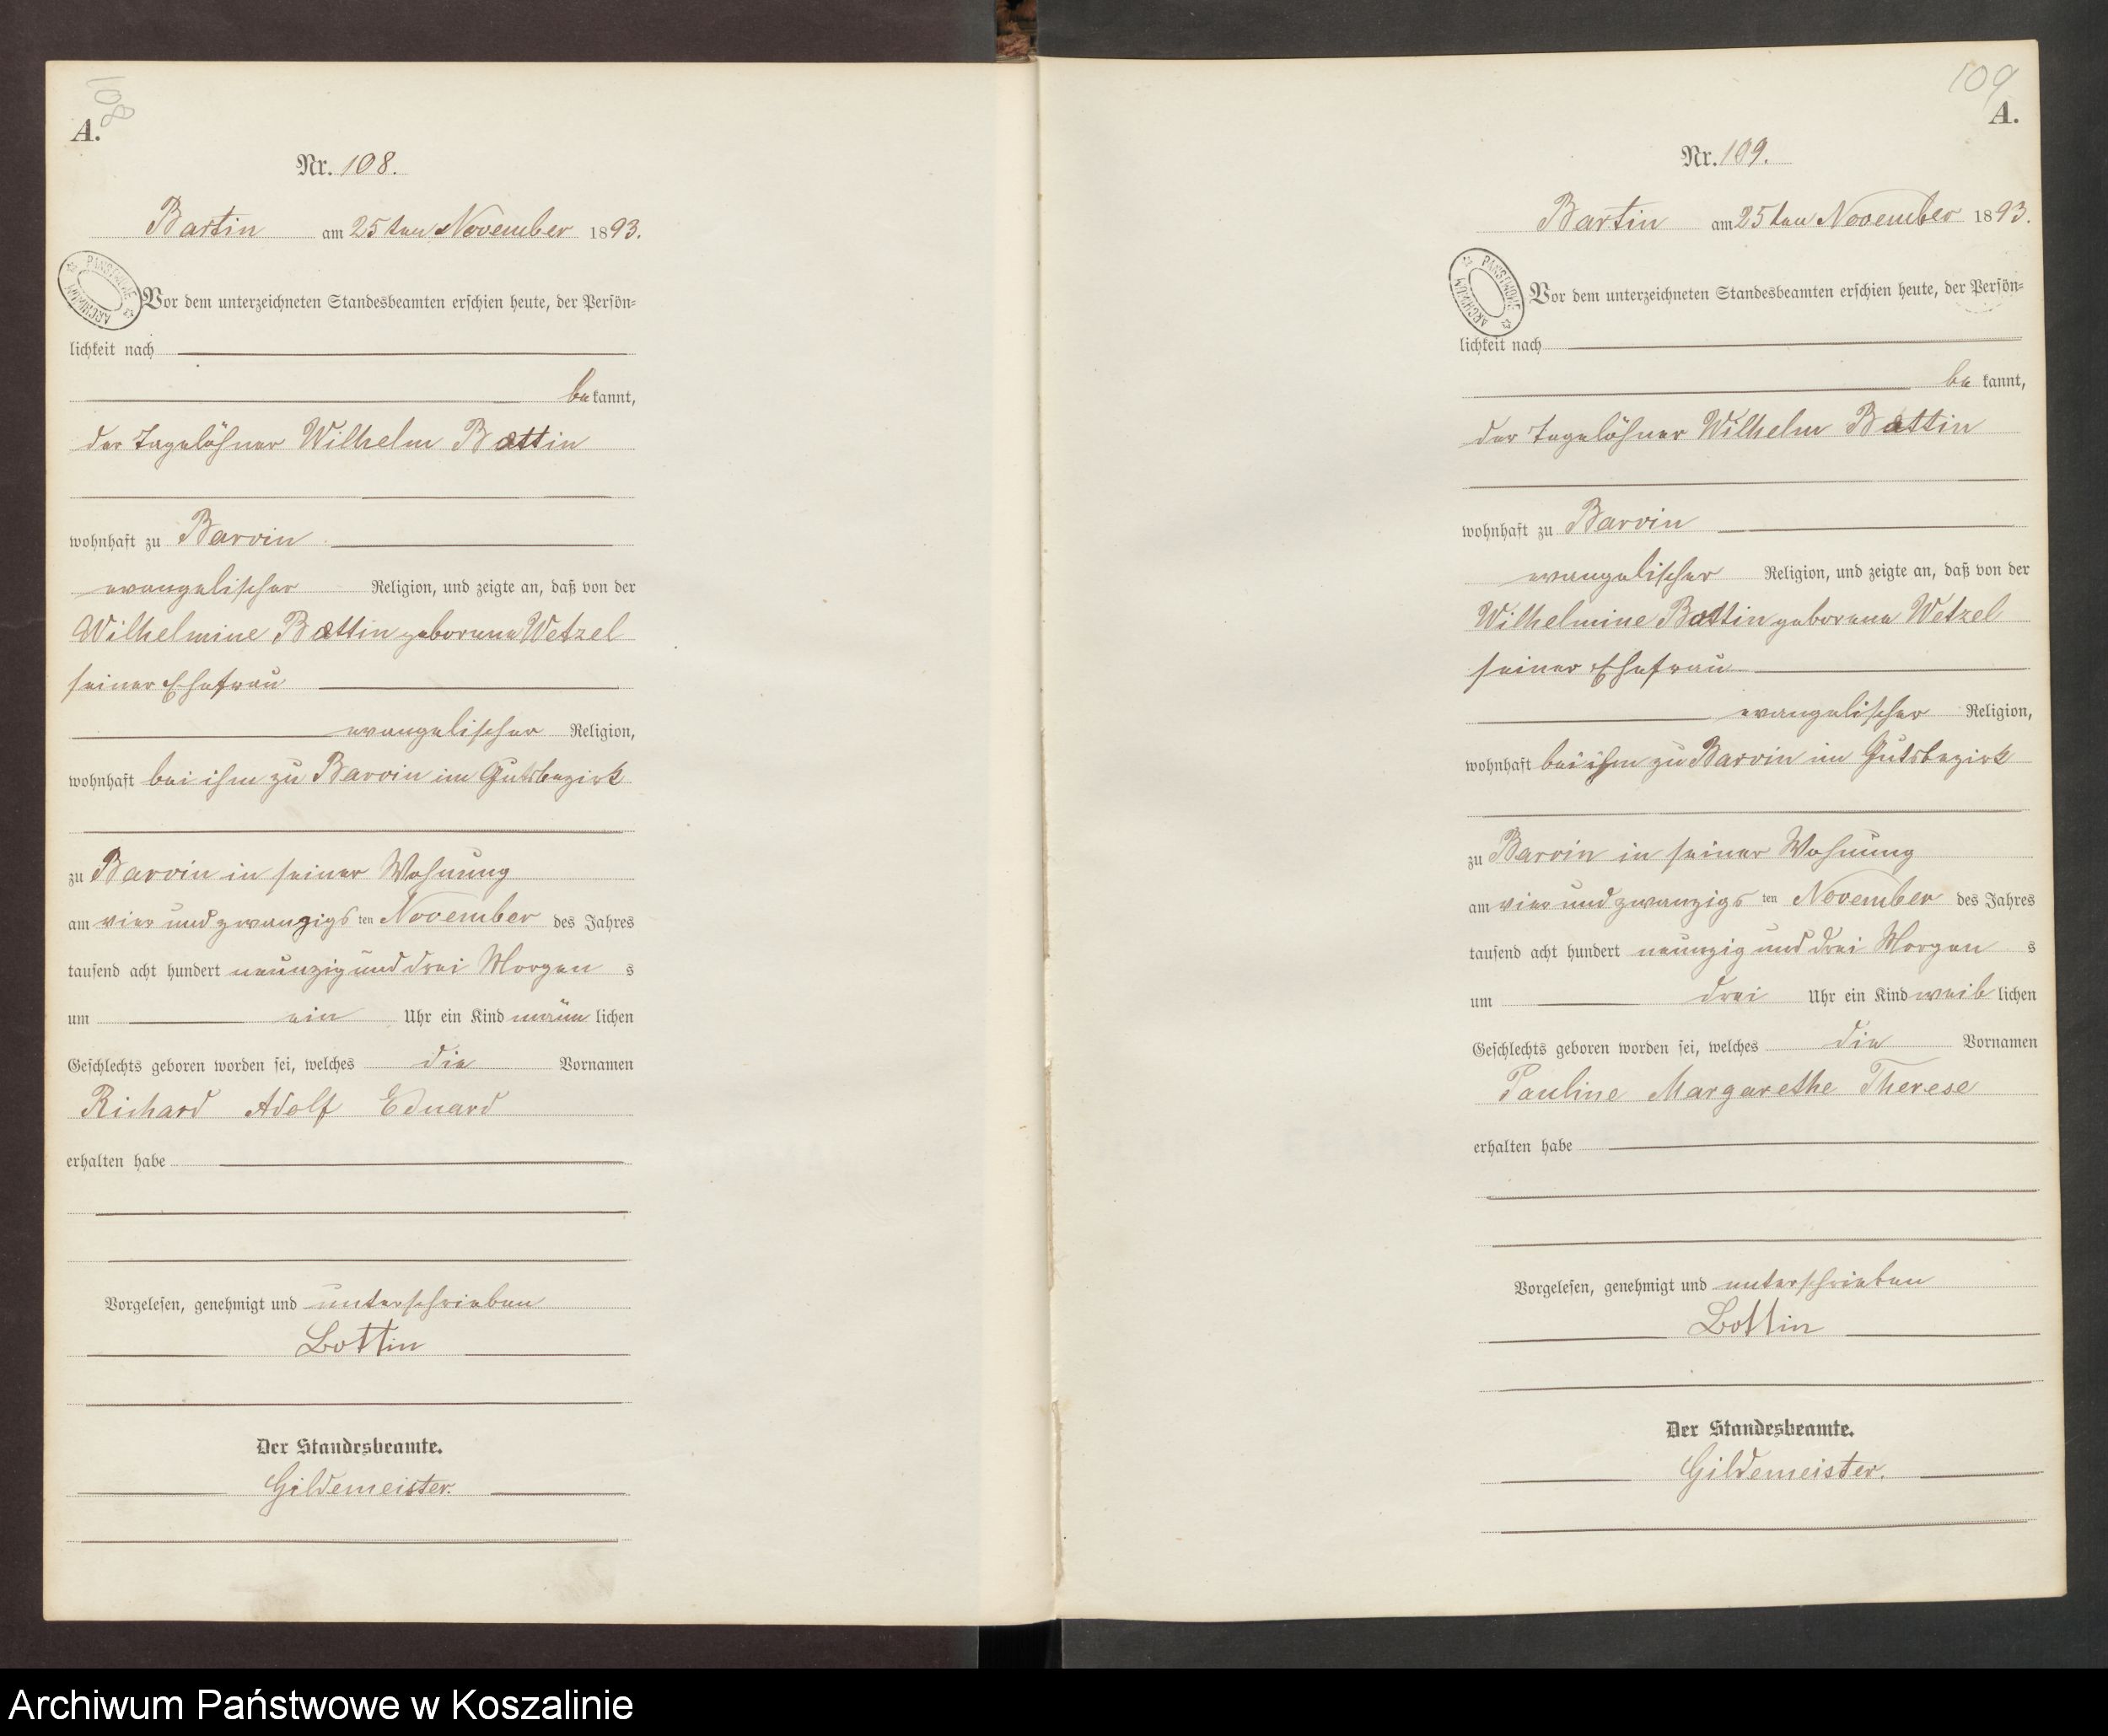 108
A.
Nr. 108.
Bartin am 25ten November 1893.
PANSTWOWE ARCHIWUM
Vor dem unterzeichneten Standesbeamten erschien heute, der Persön=
lichkeit nach
bekannt,
der Tagelöhner Wilhelm Bottin
wohnhaft zu Barvin
evangelischer Religion, und zeigte an, daß von der
Wilhelmine Bottin geborene Wetzel
seiner Ehefrau
evangelischer Religion,
wohnhaft bei ihm zu Barvin im Gutsbezirk
zu Barvin in seiner Wohnung
am vier und zwanzigsten November des Jahres
tausend acht hundert neunzig und drei Morgens
um ein Uhr ein Kind männlichen
Geschlechts geboren worden sei, welches die Vornamen
Richard Adolf Eduard
erhalten habe
Vorgelesen, genehmigt und unterschrieben
Bottin
Der Standesbeamte.
Gildemeister.
109
A.
Nr. 109.
Bartin am 25ten November 1893.
PANSTWOWE ARCHIWUM
Vor dem unterzeichneten Standesbeamten erschien heute, der Persön=
lichkeit nach
bekannt,
der Tagelöhner Wilhelm Bottin
wohnhaft zu Barvin
evangelischer Religion, und zeigte an, daß von der
Wilhelmine Bottin geborene Wetzel
seiner Ehefrau
evangelischer Religion,
wohnhaft bei ihm zu Barvin im Gutsbezirk
zu Barvin in seiner Wohnung
am vier und zwanzigsten November des Jahres
tausend acht hundert neunzig und drei Morgens
um drei Uhr ein Kind weiblichen
Geschlechts geboren worden sei, welches die Vornamen
Pauline Margarethe Therese
erhalten habe
Vorgelesen, genehmigt und unterschrieben
Bottin
Der Standesbeamte.
Gildemeister.
Archiwum Państwowe w Koszalinie